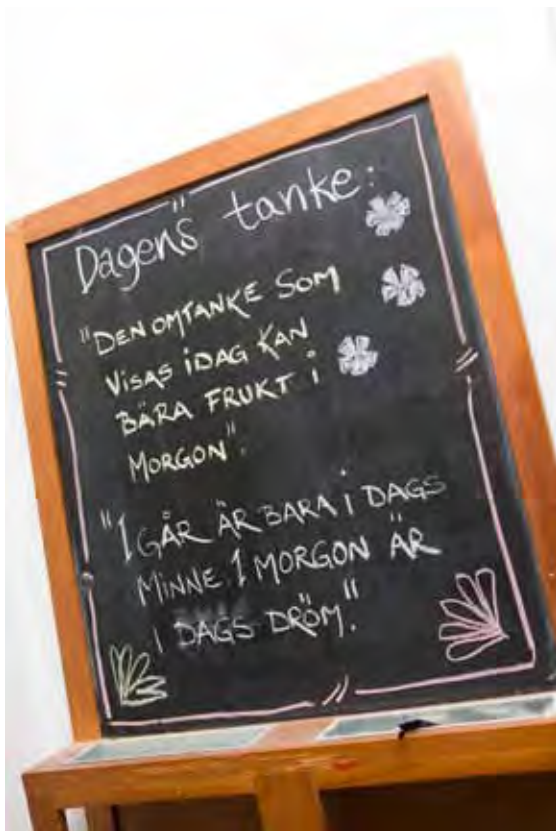 Dagens tanke:
"DEN OMTANKE SOM
VISAS iDAG KAN
BÄRA FRUKT i
MORGON".
"I GÅR ÄR BARA i DAGS
MINNE. I MORGON ÄR
I DAGS DRÖM."